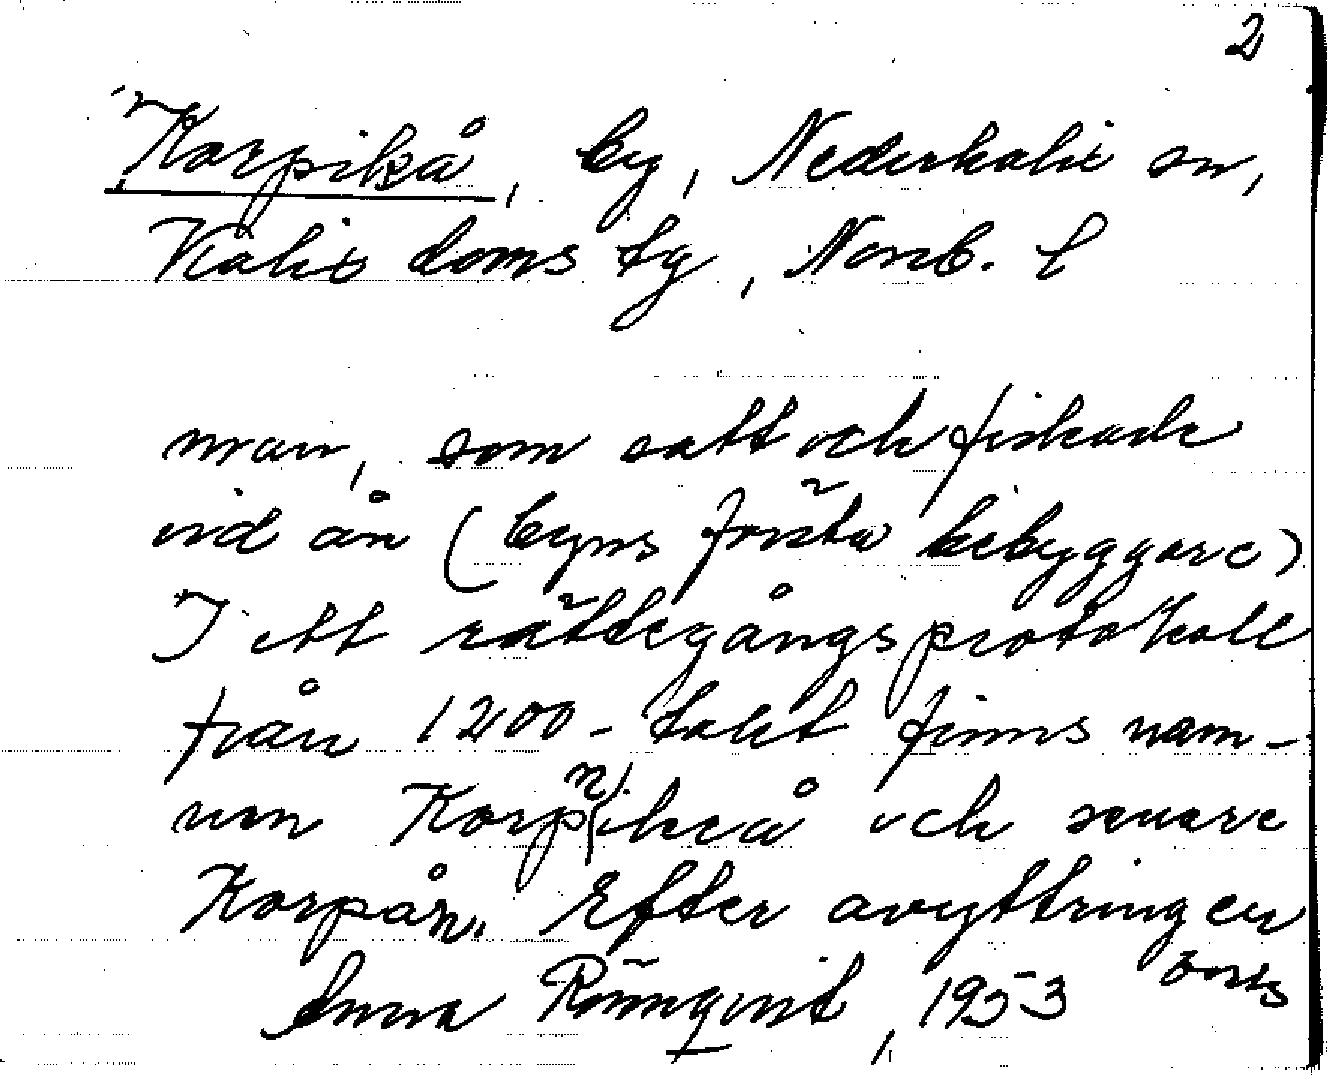 2
Korpikå, by, Nederkalix sn,
Kalix doms tg, Norrb. l
man, som satt och fiskade
vid ån (byns första bebyggare)
I ett rättegångsprotokoll
från 1200-talet finns nam-
nen Korpnikeå och senare
Korpån. Efter avyttringen
Anna Rönnqvist, 1953